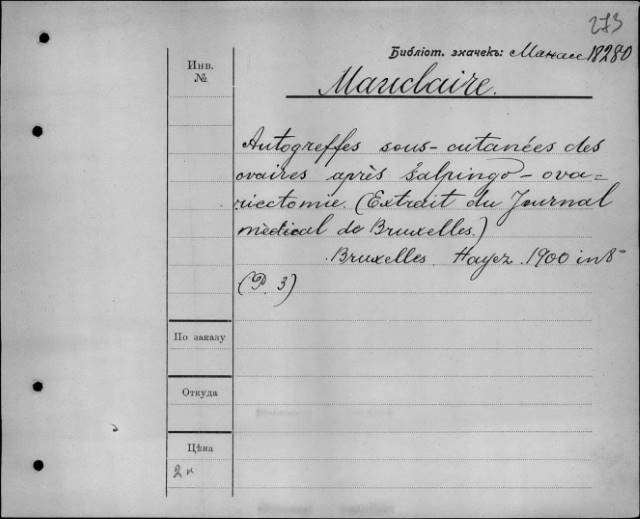 273
Библіот. значекъ: Манас 18280
Инв.
№
Mauclaire.
Autogreffes sous-cutanées des
ovaires après salpingo-ova-
riectomie. (Extrait du Journal
médical de Bruxelles.)
Bruxelles. Hayez. 1900 in 8°
(P. 3)
По заказу
Откуда
Цѣна
2 к